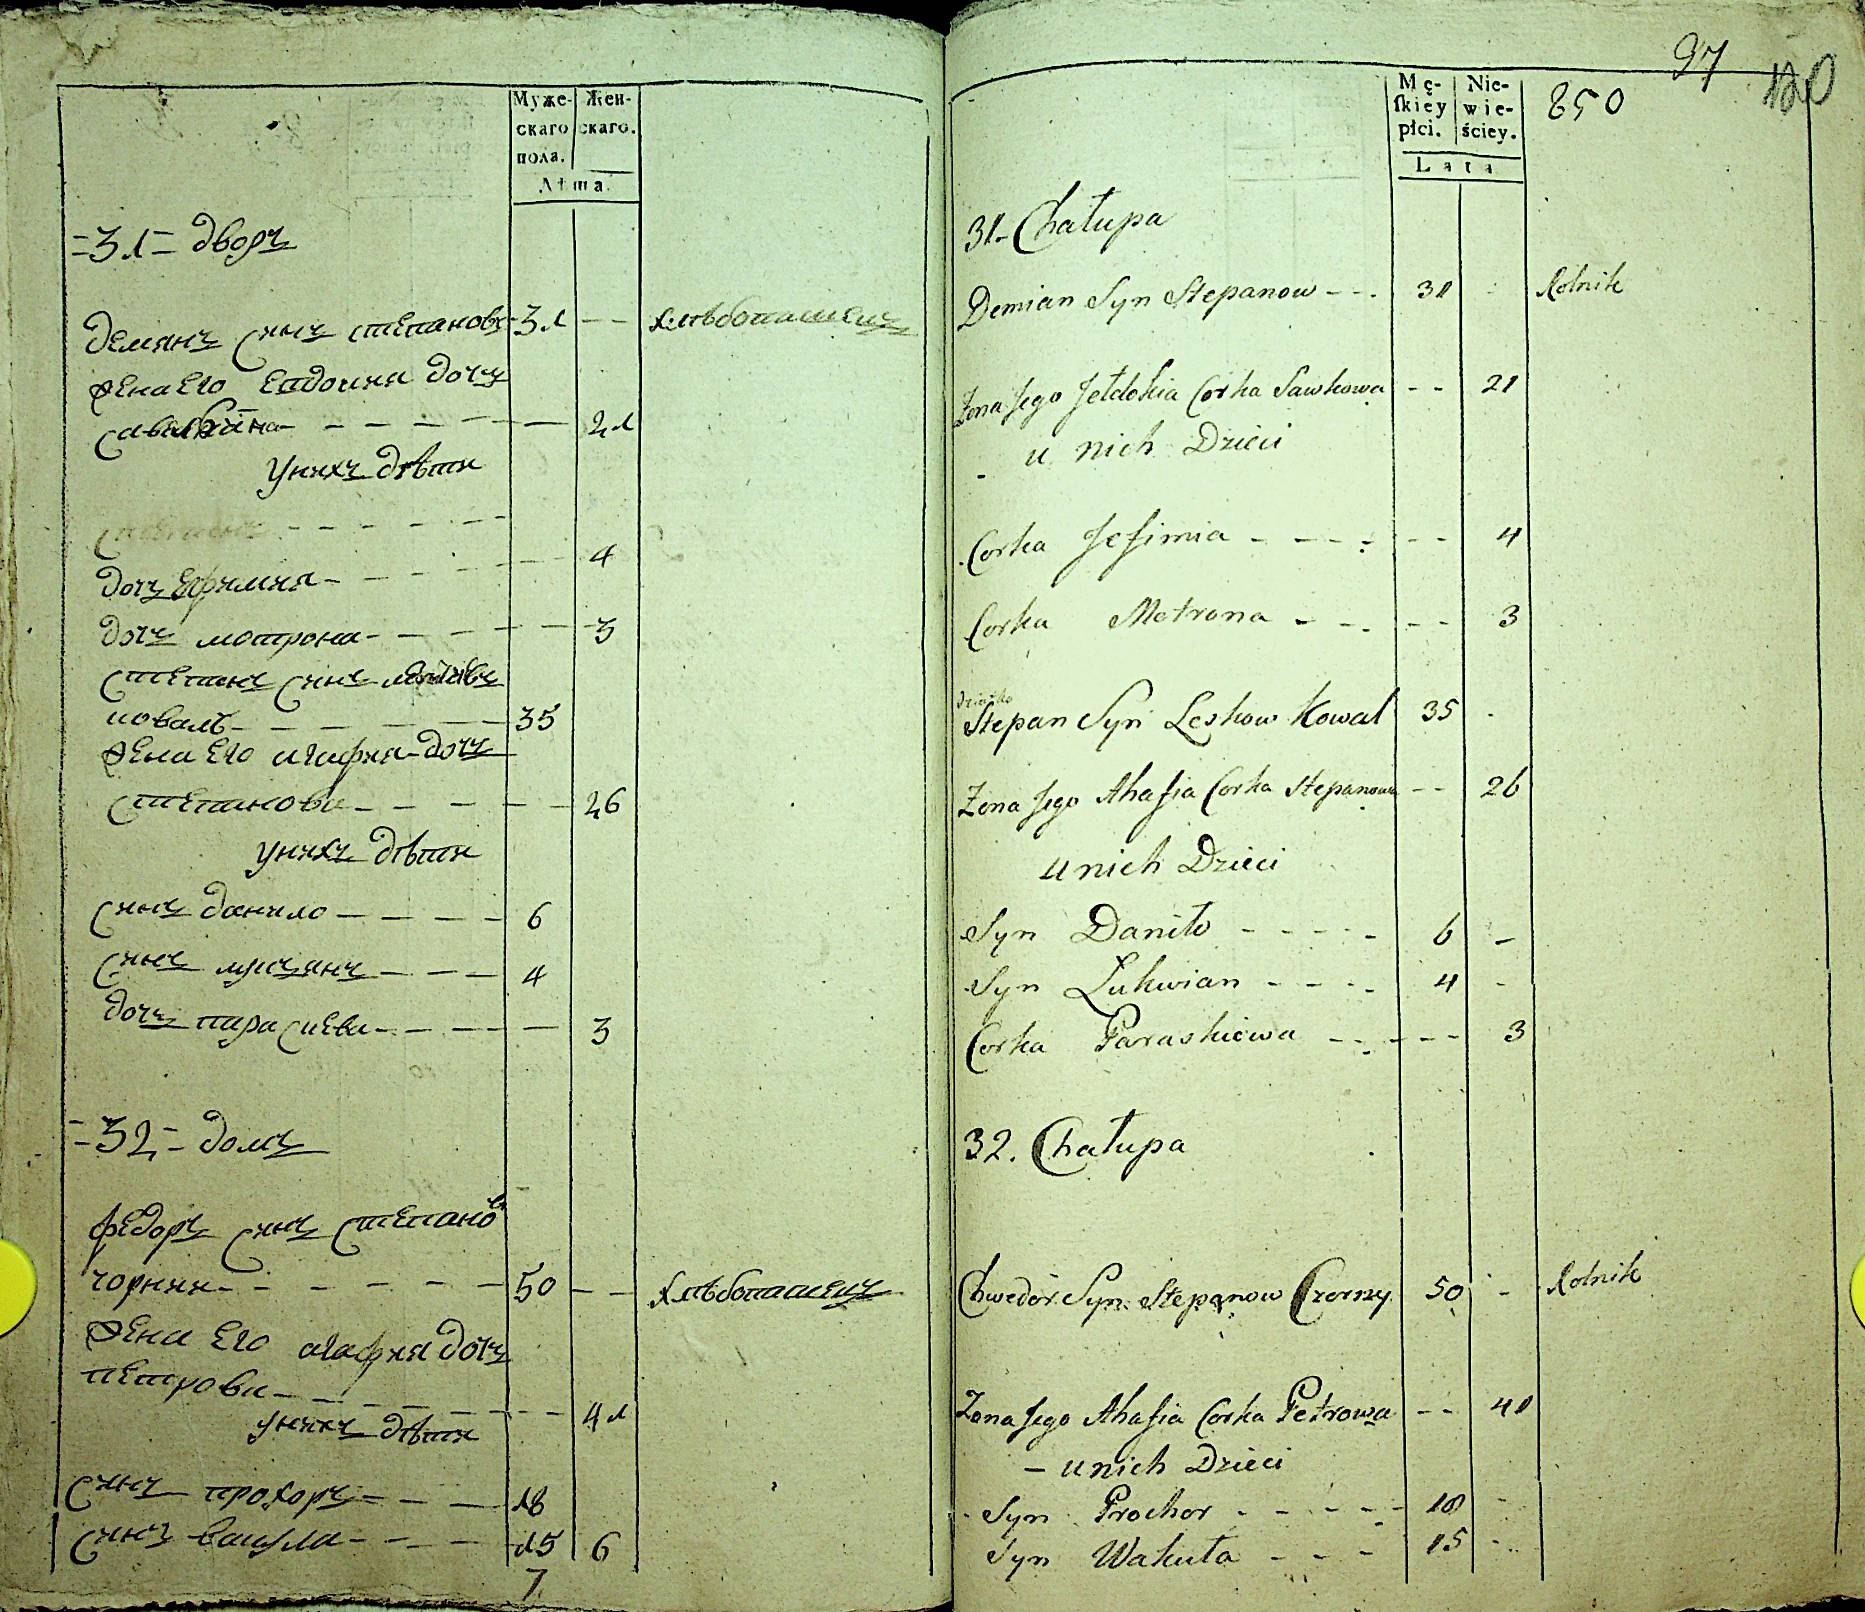 Муже-
скаго
пола.
Жен-
скаго.
Лѣта.
=31= дворъ
Демянъ синъ степановъ 31 — — хлѣбопашецъ
жена его Евдокия дочъ
савкина — — — — — — 21
у нихъ дѣти
дочъ Ефимия — — — — — 4
дочъ мотрона — — — — — 3
степанъ синъ
коваль — — — — — 35
жена его агафия дочъ
степанова — — — — — 26
у нихъ дѣти
синъ данило — — — — 6
синъ — — — 4
дочъ параскева — — — — — 3
=32= домъ
федоръ синъ степановъ
чорний — — — — — 50 — — хлѣбопашецъ
жена его агафия дочъ
петрова — — — — — — 41
у нихъ дѣти
синъ прохоръ — — — 18
синъ вакула — — — 15 6
7
97
120
850
Mę-
skiey
płci.
Nie-
wie-
ściey.
Lata
31. Chałupa
Demian Syn Stepanow - - . 31 - Rolnik
Zona Jego Jełdokia Corka Sawkowa - - 21
u nich Dzieci
Corka Jefimia - - - - - - 4
Corka Motrona - - - - - 3
Stepan Syn Leskow Kowal 35 -
Zona Jego Ahafia Corka Stepanowa - - 26
u nich Dzieci
Syn Daniło - - - - - 6 -
Syn Lukwian - - - - 4 -
Corka Paraskiewa - - - - - 3
32. Chałupa
Chwedor Syn Stepanow Czorny 50 - Rolnik
Zona Jego Ahafia Corka Petrowa - - 41
- u nich Dzieci
Syn Prochor - - - - - 18 -
Syn Wakuła - - - 15 -